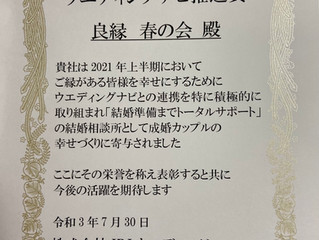 良縁 春の会 殿
貴社は2021年上半期において
ご縁がある皆様を幸せにするために
ウエディングナビとの連携を特に積極的に
取り組まれ「結婚準備までトータルサポート」
の結婚相談所として成婚カップルの
幸せづくりに寄与されました
ここにその栄誉を称え表彰すると共に
今後の活躍を期待します
令和3年7月30日